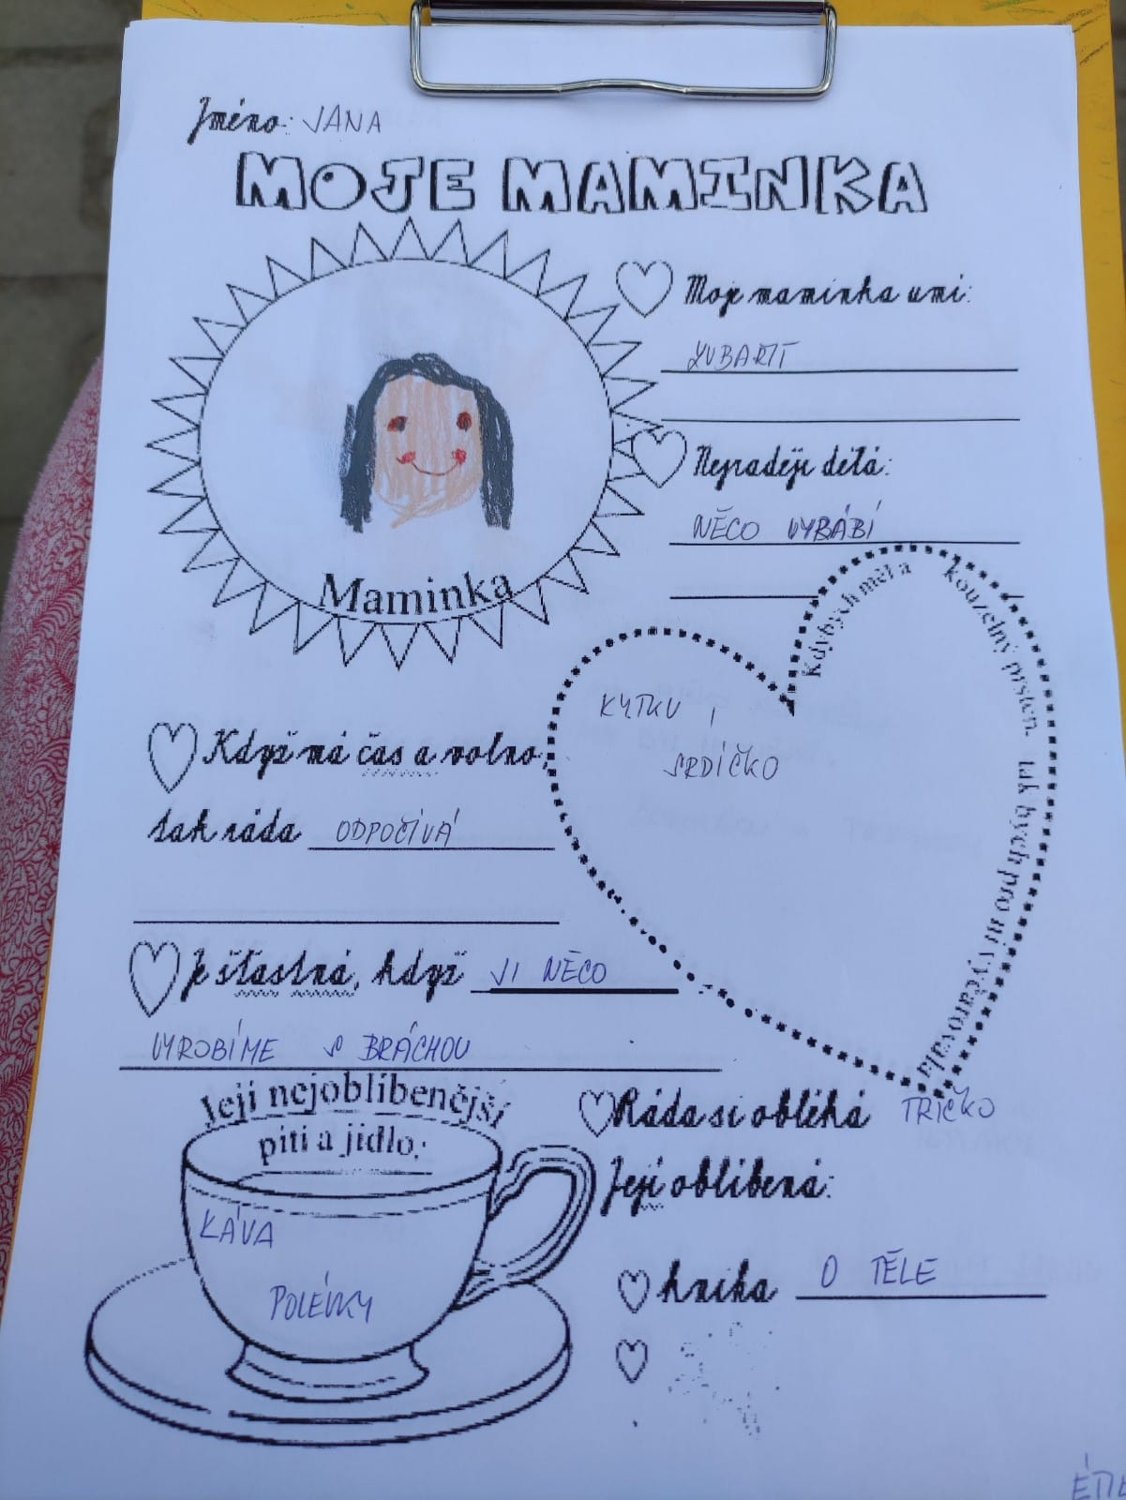 Jméno: JANA
MOJE MAMINKA
Moje maminka umí:
ŽUBARTT
Nejraději dělá:
NĚCO VYBÁBÍ
Maminka
Kdybych měl a kouzelný prsten, tak bych pro ni vyčarovala
KYTKU,
SRDÍČKO
Když má čas a volno,
tak ráda ODPOČÍVÁ
Je šťastná, když JI NĚCO
VYROBÍME S BRÁCHOU
Její nejoblíbenější
pití a jídlo:
KÁVA
POLÉVKY
Ráda si obléká TRIČKO
Její oblíbená:
kniha O TĚLE